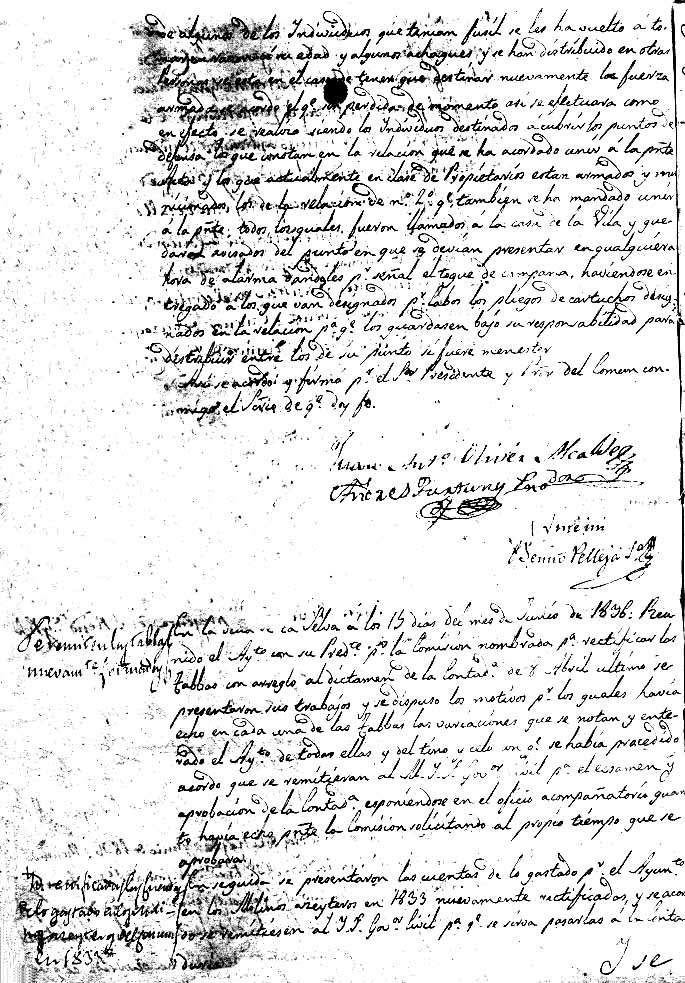 de algunos de los Individuos que tenian fusil se les ha vuelto á to-
su edad y algunos achaques y se han distribuido en otras
en el caso de tener que destinar nuevamente la fuerza
armada se acordó el qe. sin perdida de momento asi se efectuara como
en efecto se realizó siendo los Individuos destinados á cubrir los puntos de
defensa los que constan en la relacion que se ha acordado unir á la pnte
y los que actualmente en clase de Propietarios estan armados y mu
nicionados, los de la relacion de no. 2o. qe. tambien se ha mandado unir
á la pnte. todos los quales fueron llamados á la casa de la Vila y que-
daron avisados del punto en que se devian presentar en qualquiera
hora de alarma dandoles pr. señal el toque de campana, haviendose en
tregado á los que van designados pr. Cabos los pliegos de cartuchos desig-
nados en la relacion pa. qe. los guardasen bajo su responsabilidad para
distribuir entre los de su punto si fuere menester
Asi se acordó y firmó pr. el Sor. Presidente y del Comun con-
migo el Srio. de qe. doy fe.
Juan Anto. Oliver Alcalde
Andres
Pelleja
En la Villa de la Selva á los 15 dias del mes de Junio de 1836. Reu
nido el Ayto. con su Predte. pr. la Comision nombrada pa. rectificar las
Tabbas con arreglo al dictamen de la Contada. de 8 Abril ultimo se
presentaron sus trabajos y se dispuso los motivos pr. los quales havia
echo en cada una de las Tabbas las variaciones que se notan y ente-
rado el Ayto. de todas ellas y del tino y celo con qe. se habia procedido
acordó que se remitieran al M. I. S. Govor. Civil pa. el ecsamen y
aprobacion de la Contada. esponiendose en el oficio acompañatorio quan
to havia echo pnte la Comision solicitando al propio tiempo que se
aprobara
En seguida se presentaron las cuentas de lo gastado pr. el Ayunto.
en los Molinos azeyteros en 1833 nuevamente rectificadas, y se acor
dó se remitiesen al I. S. Govor. Civil pa. qe. se sirva pasarlas á la Conta
duria
Y se
Se remiten las Tabbas
nuevamte. formadas
en 1833